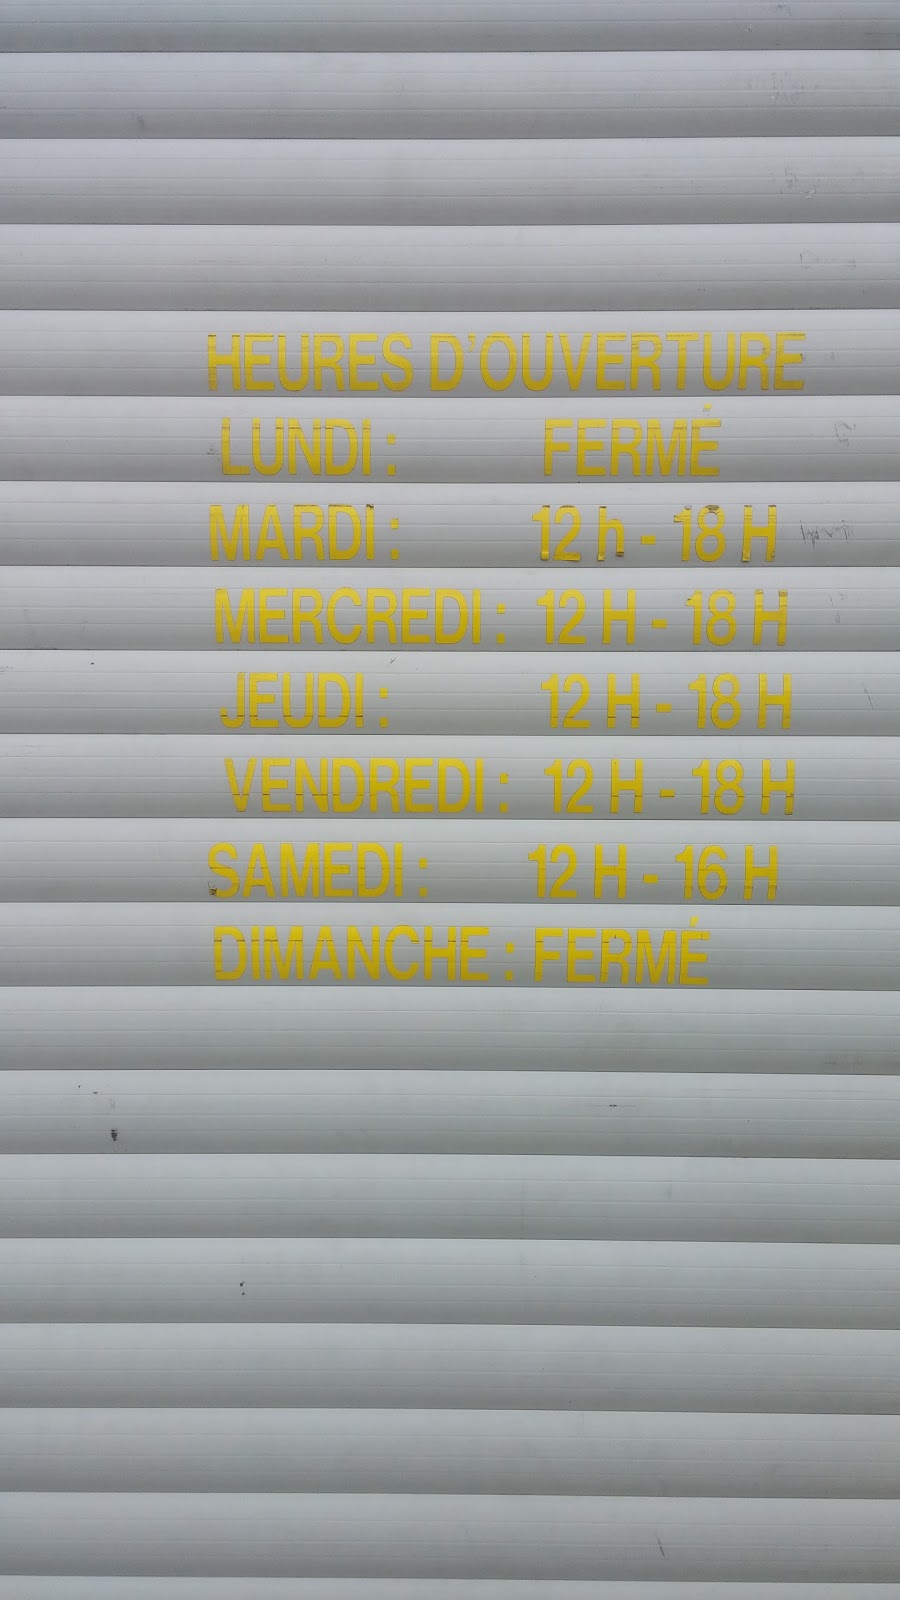 HEURES D'OUVERTURE
LUNDI : FERMÉ
MARDI : 12 h - 18 H
MERCREDI : 12 H - 18 H
JEUDI : 12 H - 18 H
VENDREDI : 12 H - 18 H
SAMEDI : 12 H - 16 H
DIMANCHE : FERMÉ